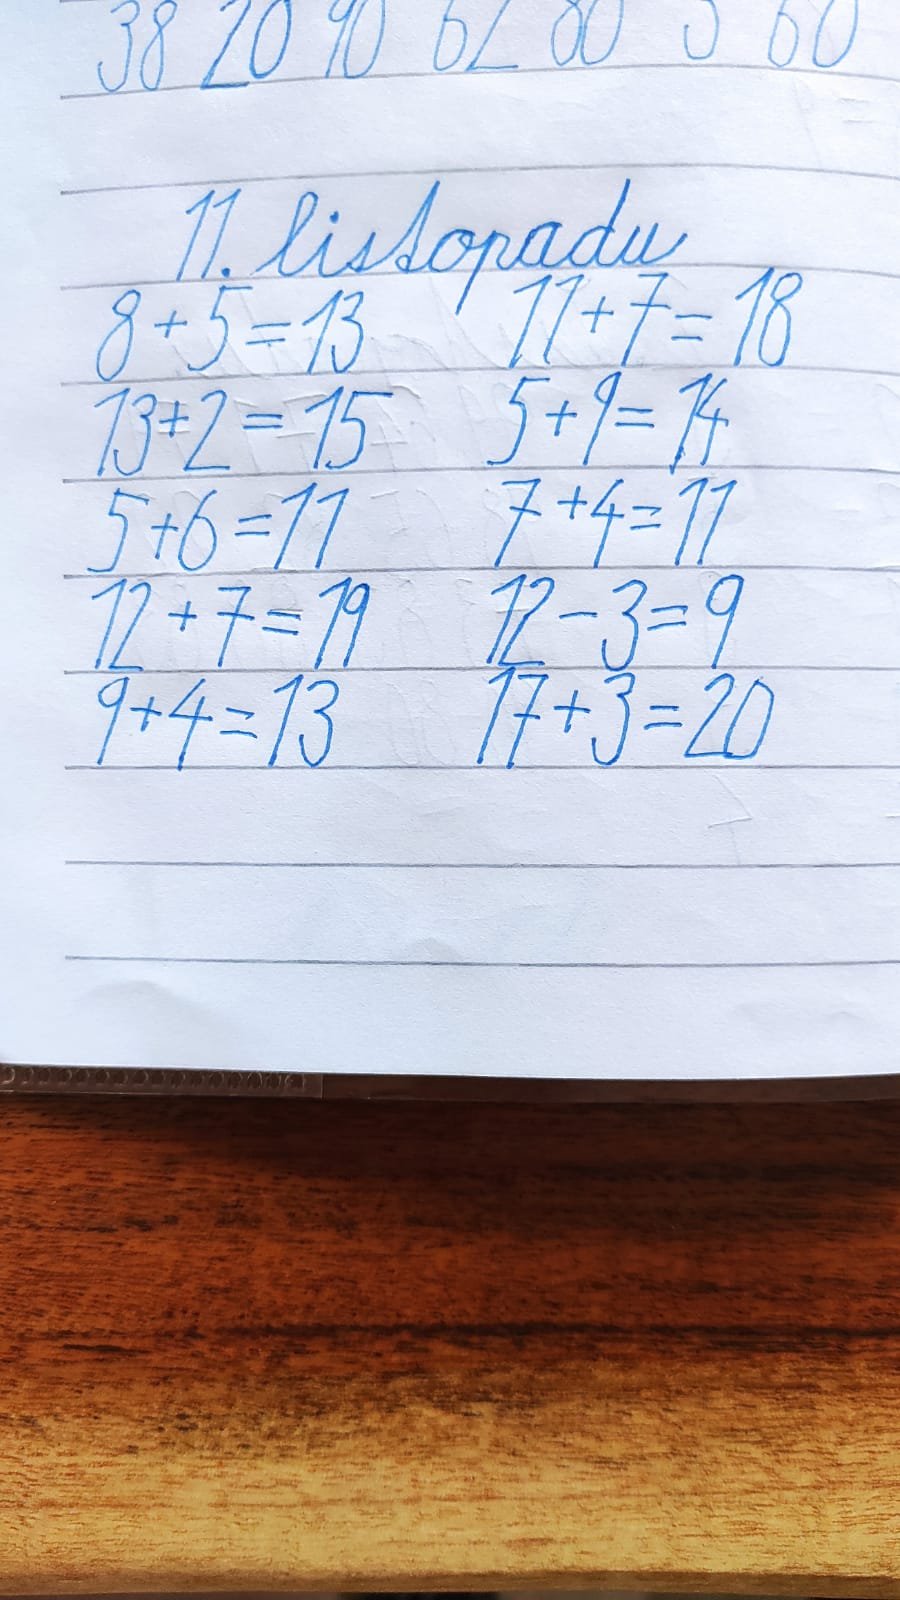 38 20 90 62 80 5 60
11. listopadu
8+5=13 11+7=18
13+2=15 5+9=14
5+6=11 7+4=11
12+7=19 12-3=9
9+4=13 17+3=20